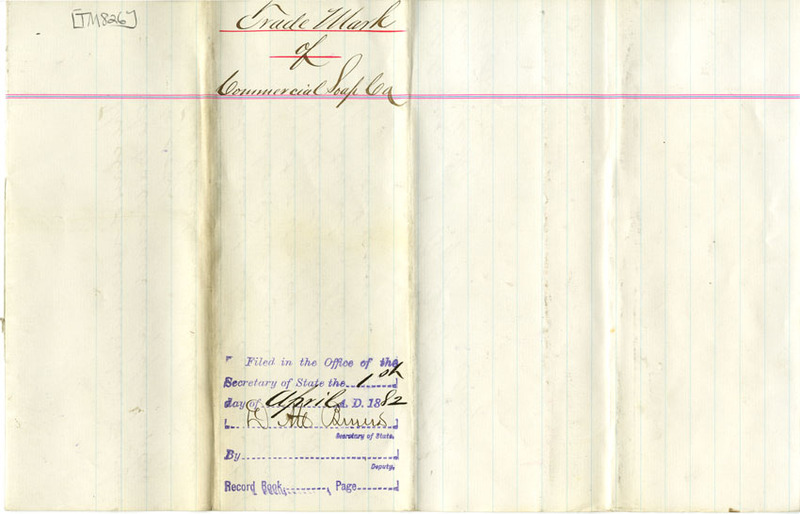 [TM826]
Trade Mark
of
Commercial Soap Co
Filed in the Office of the
Secretary of State the 1st
day of April A. D. 1882
Secretary of State.
By
Deputy.
Record Book, Page